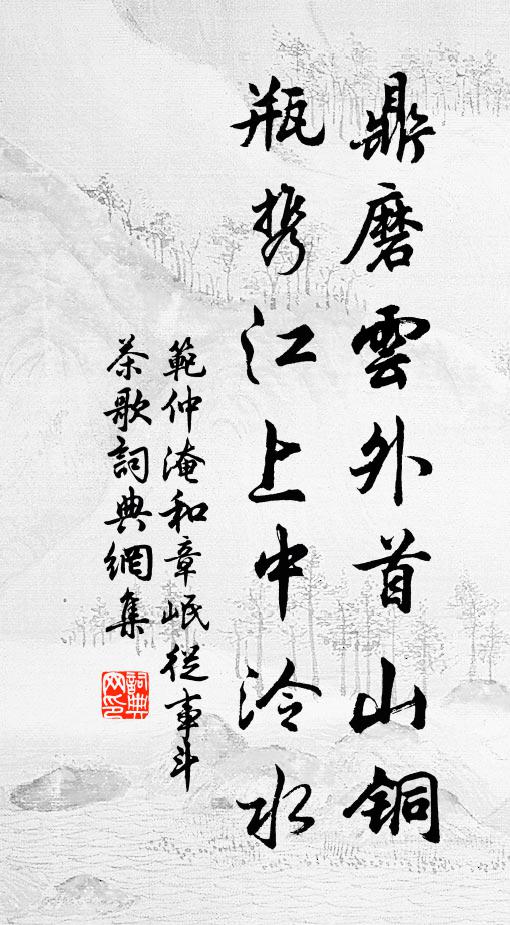 鼎磨雲外首山铜
瓶携江上中泠水
範仲淹和章岷從事斗
茶歌詞典網集
詞典
网印